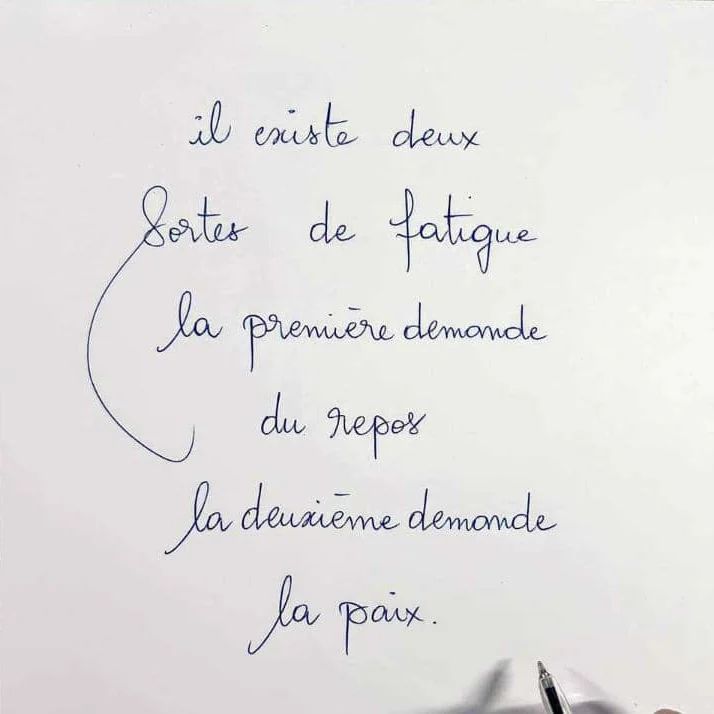 il existe deux
Sortes de fatigue
la première demande
du repos
la deuxième demande
la paix.